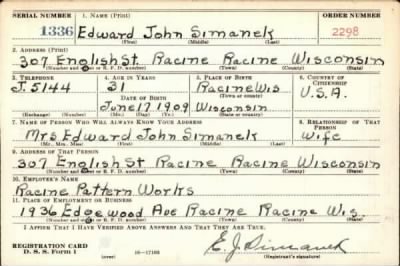 SERIAL NUMBER 1. NAME (Print) ORDER NUMBER
1336 Edward John Simanek 2298
(First) (Middle) (Last)
2. ADDRESS (Print)
307 English St. Racine Racine Wisconsin
(Number and street or R. F. D. number) (Town) (County) (State)
3. TELEPHONE 4. AGE IN YEARS 5. PLACE OF BIRTH 6. COUNTRY OF CITIZENSHIP
J. 5144 31 Racine Wis U.S.A.
DATE OF BIRTH (Town or county)
June 17 1909 Wisconsin
(Exchange) (Number) (Mo.) (Day) (Yr.) (State or country)
7. NAME OF PERSON WHO WILL ALWAYS KNOW YOUR ADDRESS 8. RELATIONSHIP OF THAT PERSON
Mrs Edward John Simanek Wife
(Mr., Mrs., Miss) (First) (Middle) (Last)
9. ADDRESS OF THAT PERSON
307 English St Racine Racine Wisconsin
(Number and street or R. F. D. number) (Town) (County) (State)
10. EMPLOYER'S NAME
Racine Pattern Works
11. PLACE OF EMPLOYMENT OR BUSINESS
1936 Edgewood Ave Racine Racine Wis.
(Number and street or R. F. D. number) (Town) (County) (State)
I AFFIRM THAT I HAVE VERIFIED ABOVE ANSWERS AND THAT THEY ARE TRUE.
REGISTRATION CARD E. J. Simanek
D. S. S. Form 1 16—17105 (Registrant's signature)